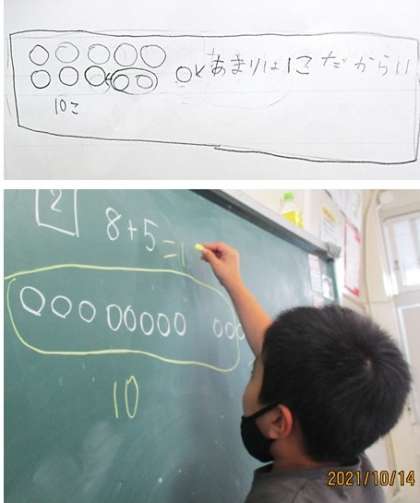 あまりは1こだから11
10こ
2
8+5=1
10
2021/10/14